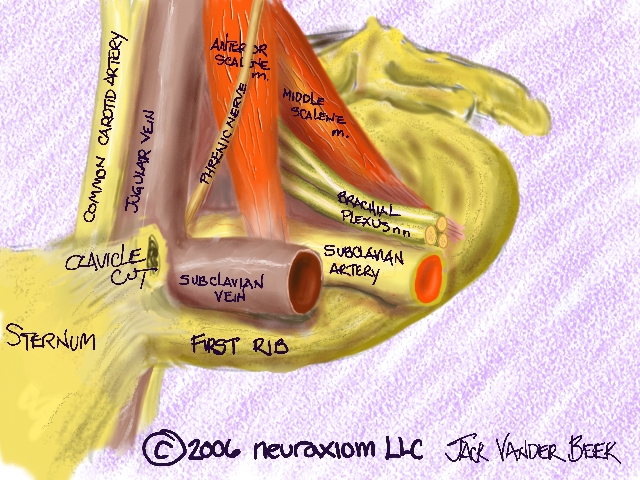 COMMON CAROTID ARTERY
JUGULAR VEIN
PHRENIC NERVE
ANTERIOR
SCALENE
m.
MIDDLE
SCALENE
m.
BRACHIAL
PLEXUS nn
CLAVICLE
CUT
SUBCLAVIAN
VEIN
SUBCLAVIAN
ARTERY
STERNUM
FIRST RIB
© 2006 neuraxiom LLC JACK VANDER BEEK